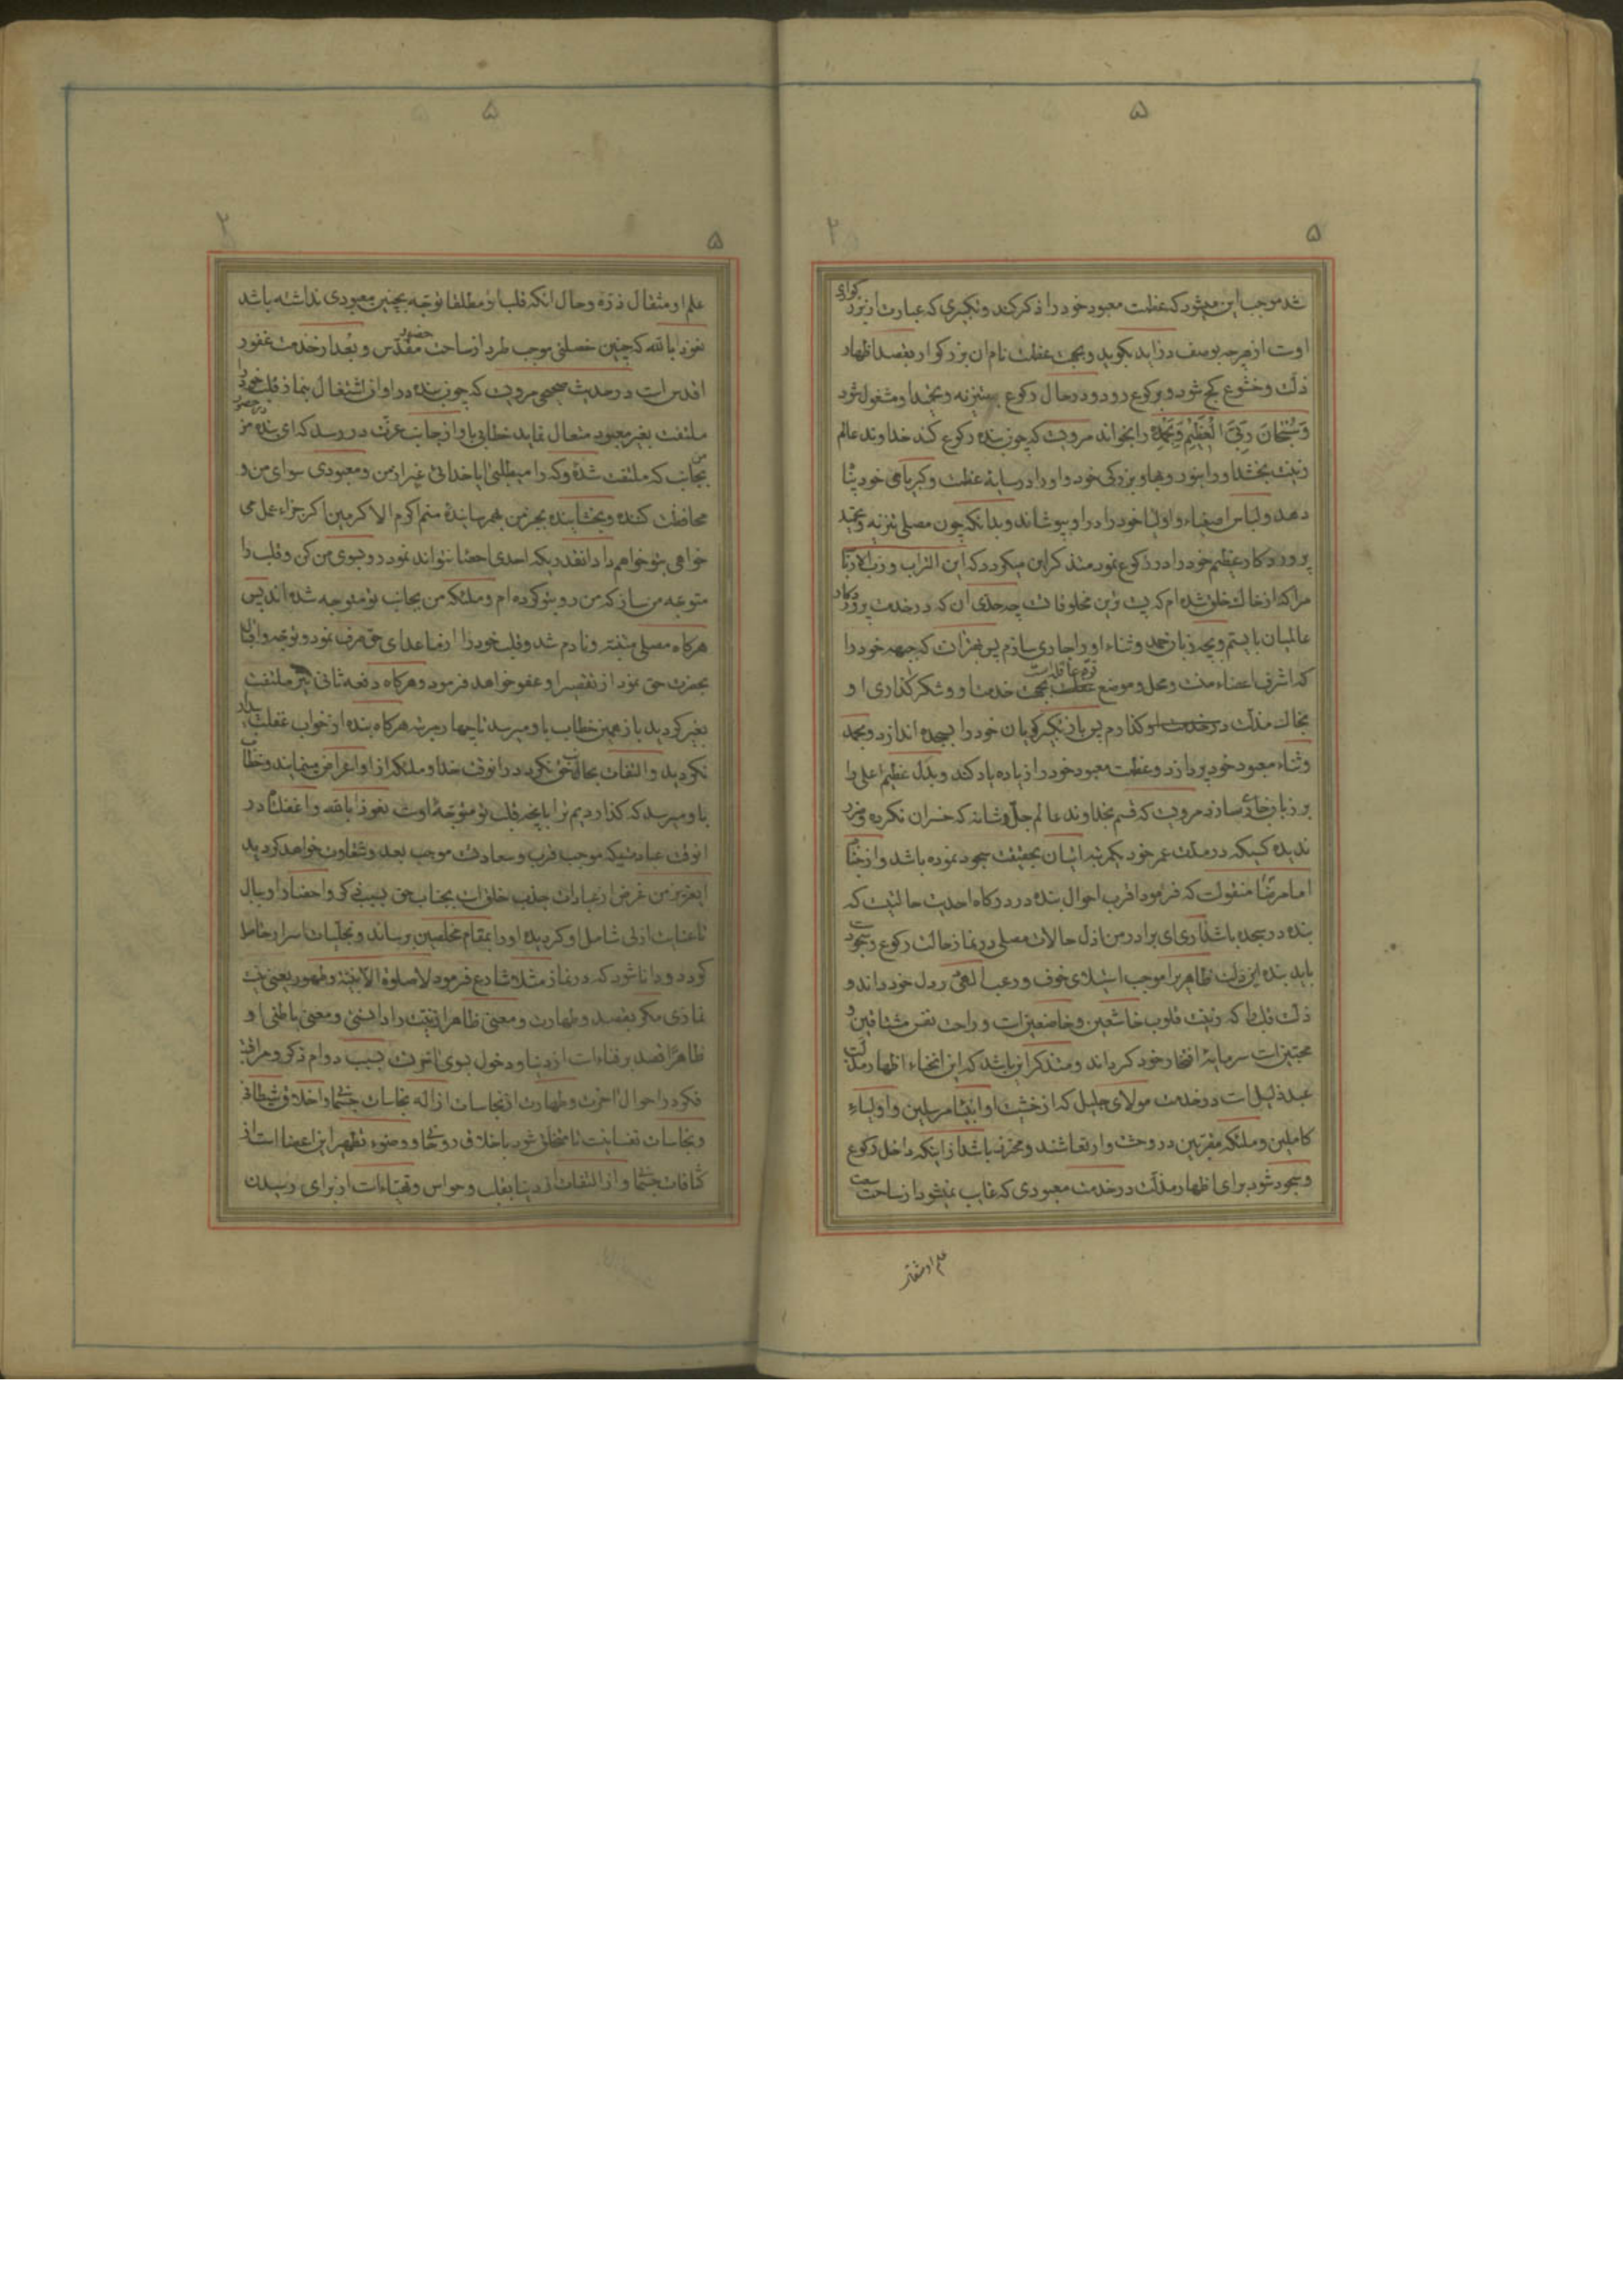 ۵
۵
شد موجب این میشود که عظمت معبود خود را ذکر کند و تکبیری که عبارت از بزرکواری
اوست از هرچه بوصف دراید بکوید و بجهت عظمت نام ان بزرکوار بقصد اظهار
ذلت و خشوع کج شود و برکوع رود و در حال رکوع به تنزیه و تمجید او مشغول شود
وَسُبْحَانَ رَبِّیَ الْعَظِیْمِ وَبِحَمْدِه را بخواند مرویست که چون بنده رکوع کند خداوند عالم
زینت بخشد او را بنور و بهاء و بزرکی خود و او را در سایهٔ عظمت و کبریاهی خود پناه
دهد و لباس اصفیاء و اولیا خود را در او بپوشاند و بدانکه چون مصلی تنزیه و تمجید
پروردکار عظیم خود را در رکوع نمود متذکر این میکردد که این التراب و رب الارباب
مرا که از خاک خلق شده ام که پست ترین مخلوقاتست چه حدی ان که در خدمت پروردکار
عالمیان بایستم و بچه زبان حمد و ثناء او را جاری سازم پس بهتر انست که جبهه خود را
که اشرف اعضاء منست و محل و موضع قوّه عاقله است بجهت خدمت او و شکر کذاری او
بخاک مذلت در خدمت او کذارم پس باز تکبیر کویان خود را بسجده اندازد و بحمد
وثناء معبود خود پردازد و عظمت معبود خود را زیاده یاد کند و بدل عظیم اعلی را
بر زبان جاری سازد مرویست که قسم بخداوند عالم جل و شانه که خسران نکرده و ضرر
ندیده کسیکه در مدت عمر خود یکمرتبه اتیان بحقیقت سجود نموده باشد و از جناب
امام رضا منقولست که فرمود اقرب احوال بنده در درکاه احدیت حالتیست که
بنده در سجده باشد اری ای برادر من اذل حالات مصلی در نماز حالت رکوع و سجود است
باید بنده این ذلت ظاهریرا موجب استیلای خوف و رعب الهی در دل خود داند و
ذلت قلب را که زینت قلوب خاشعین و خاضعین است و راحت نفس مشتاقین و
محبتین است سرمایهٔ افتخار خود کرداند و متذکر این باشد که این انحناء اظهار مذلت
عبد ذلیل است در خدمت مولای جلیل که از خشیت او انبیاء مرسلین و اولیاء
کاملین و ملئکه مقربین در وحشت و ارتعاشند و محترف باشد از اینکه داخل رکوع
و سجود شود برای اظهار مذلت در خدمت معبودی که غایب نمیشود از ساحت سعت
علم او مثقال
۵
۲
۵
علم او مثقال ذرّه و حال انکه قلب او مطلقا توجّه بچنین معبودی نداشته باشد
نعوذ بالله که چنین خصلتی موجب طرد از ساحت حضور مقدّس و بُعد از خدمت غفور
اقدس است در حدیث صحیحی مرویست که چون بنده در اوان اشتغال بنماز قلب خود را
ملتفت بغیر معبود متعال نماید خطابی باو از جانب عزّت در رسد که ای بنده من
بجانب که ملتفت شدهٔ و که را میطلبی ایا خدائی غیر از من و معبودی سوای من و
محافظت کننده و بخشاینده بجز من بهم رسانیدهٔ منم اکرم الاکرمین اکر جزاء عمل می
خواهی بتو خواهم داد انقدریکه احدی احصا نتواند نمود رو بسوی من کن و قلب را
متوجه من ساز که من رو بتو کرده ام و ملئکه من بجانب تو متوجه شده اند پس
هرکاه مصلی متنبّه و نادم شد و قلب خود را از ما عدای حق صرف نمود و توجه و اقبال
بحضرت حق نمود از تقصیر او عفو خواهد فرمود و هرکاه دفعه ثانی نیز ملتفت
بغیر کردید باز همین خطاب باو میرسد تا چهار مرتبه هرکاه بنده از خواب غفلت بیدار
نکردید و التفات بجانب حق نکرد در انوقت خدا و ملئکه از او اعراض مینمایند و خطاب
باو میرسد که کذاردیم ترا بانچه قلب تو متوجه اوست نعوذ بالله و اغفلتا در
انوقت عبادتیکه موجب قرب و سعادتست موجب بعد و شقاوت خواهد کردید
ایعزیز من غرض از عبادات جذب خلق است بجناب حق بسبب ذکر و احضار او ببال
تا عنایت ازلی شامل او کردیده او را بمقام مخلصین برساند و تجلیات اسرار حاصل
کردد و دانا شود که در نماز مثلا شارع فرمود لاصلوة الا بنیّة و طهور یعنی نیست
نمازی مکر بقصد و طهارت و معنی ظاهر از نیّت را دانستی و معنی باطنی او
ظاهرًا قصد بر فناءاست از دنیا و دخول بسوی اخوت بسبب دوام ذکر و مراقبه
فکر در احوال اخرت و طهارت از نجاسات ازاله نجاسات جسمانی و اخلاق شیطانی
و نجاسات نفسانیت تا متخلق شود باخلاق روحانی و وضوء تطهیر این اعضا است از
کثافات جسمانی و از التفات از دنیا بقلب و حواس و تهیّاءاست از برای رسیدن